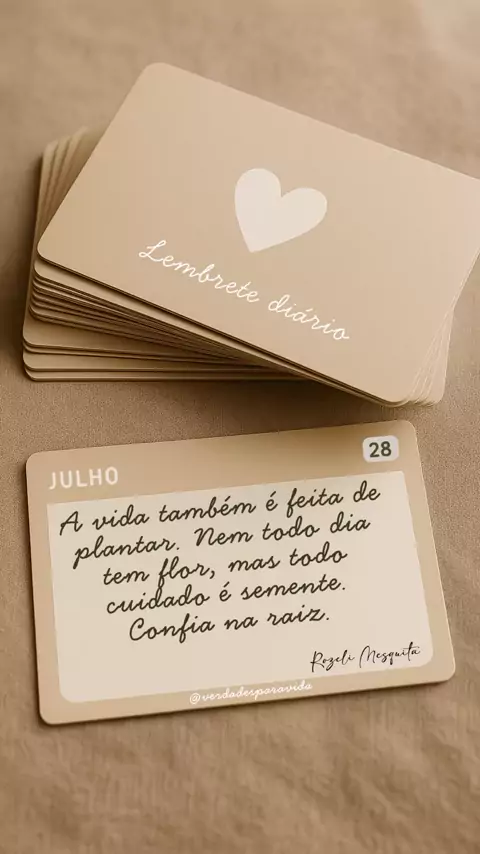 Lembrete diário
JULHO
28
A vida também é feita de
plantar. Nem todo dia
tem flor, mas todo
cuidado é semente.
Confia na raiz.
Rozeli Mesquita
@verdadesparavida